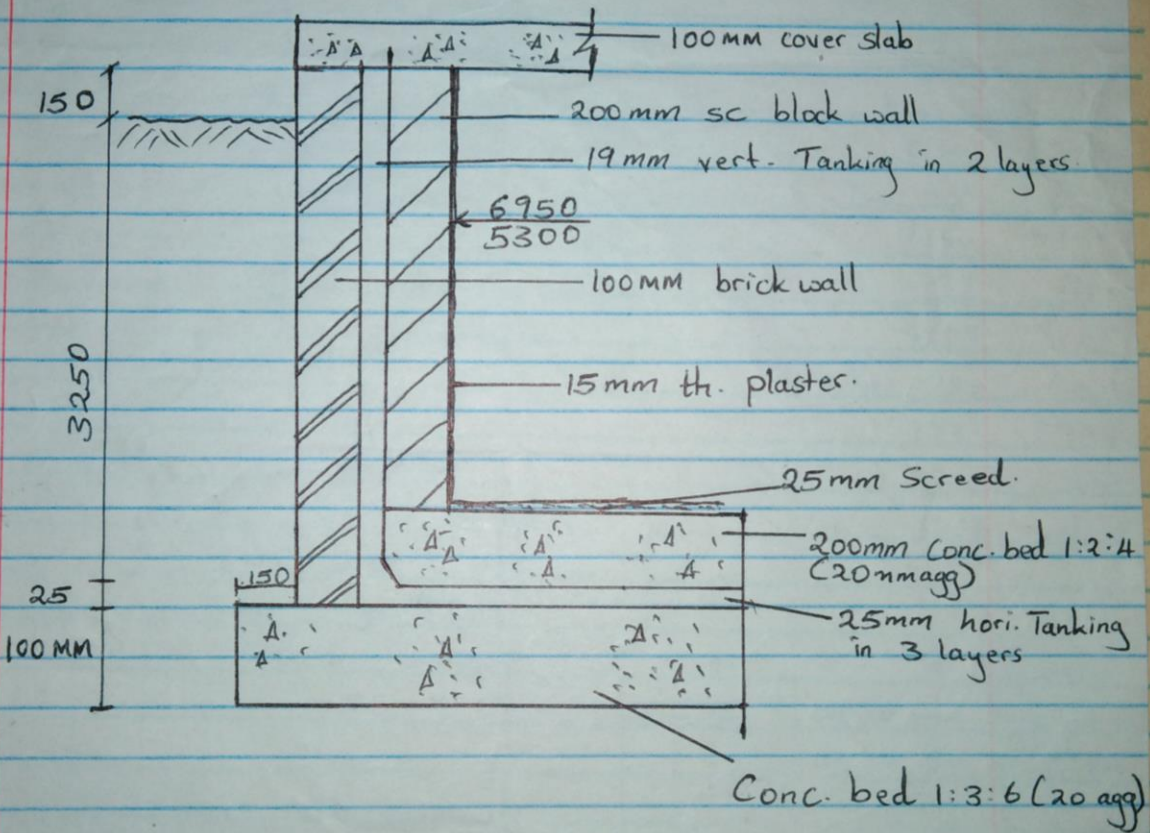 100MM cover slab
150
200mm sc block wall
19mm vert. Tanking in 2 layers.
6950
5300
100MM brick wall
3250
15mm th. plaster.
25mm Screed.
200mm Conc. bed 1:2:4
(20mmagg)
150
25
25mm hori. Tanking
in 3 layers
100MM
Conc. bed 1:3:6 (20 agg)